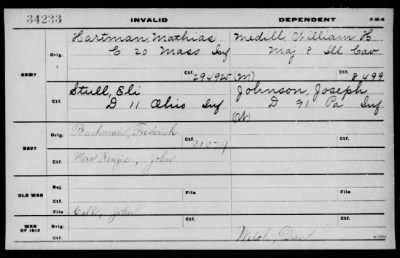 34233 INVALID DEPENDENT
Hartman, Mathias Medill, William H
Orig. C 20 Mass Inf Maj 8 Ill Cav
ARMY Ctf. 294925 (M) Ctf. 8499
Stull, Eli Johnson, Joseph
Ctf. D 11 Ohio Inf D 91 Pa Inf
Orig. Buchman, Frederick
NAVY Ctf.
Ctf. MacKenzie, John
Rej.
OLD WAR File
Ctf.
File Call, John
WAR OF 1812 Ctf.
Ctf. Welch,